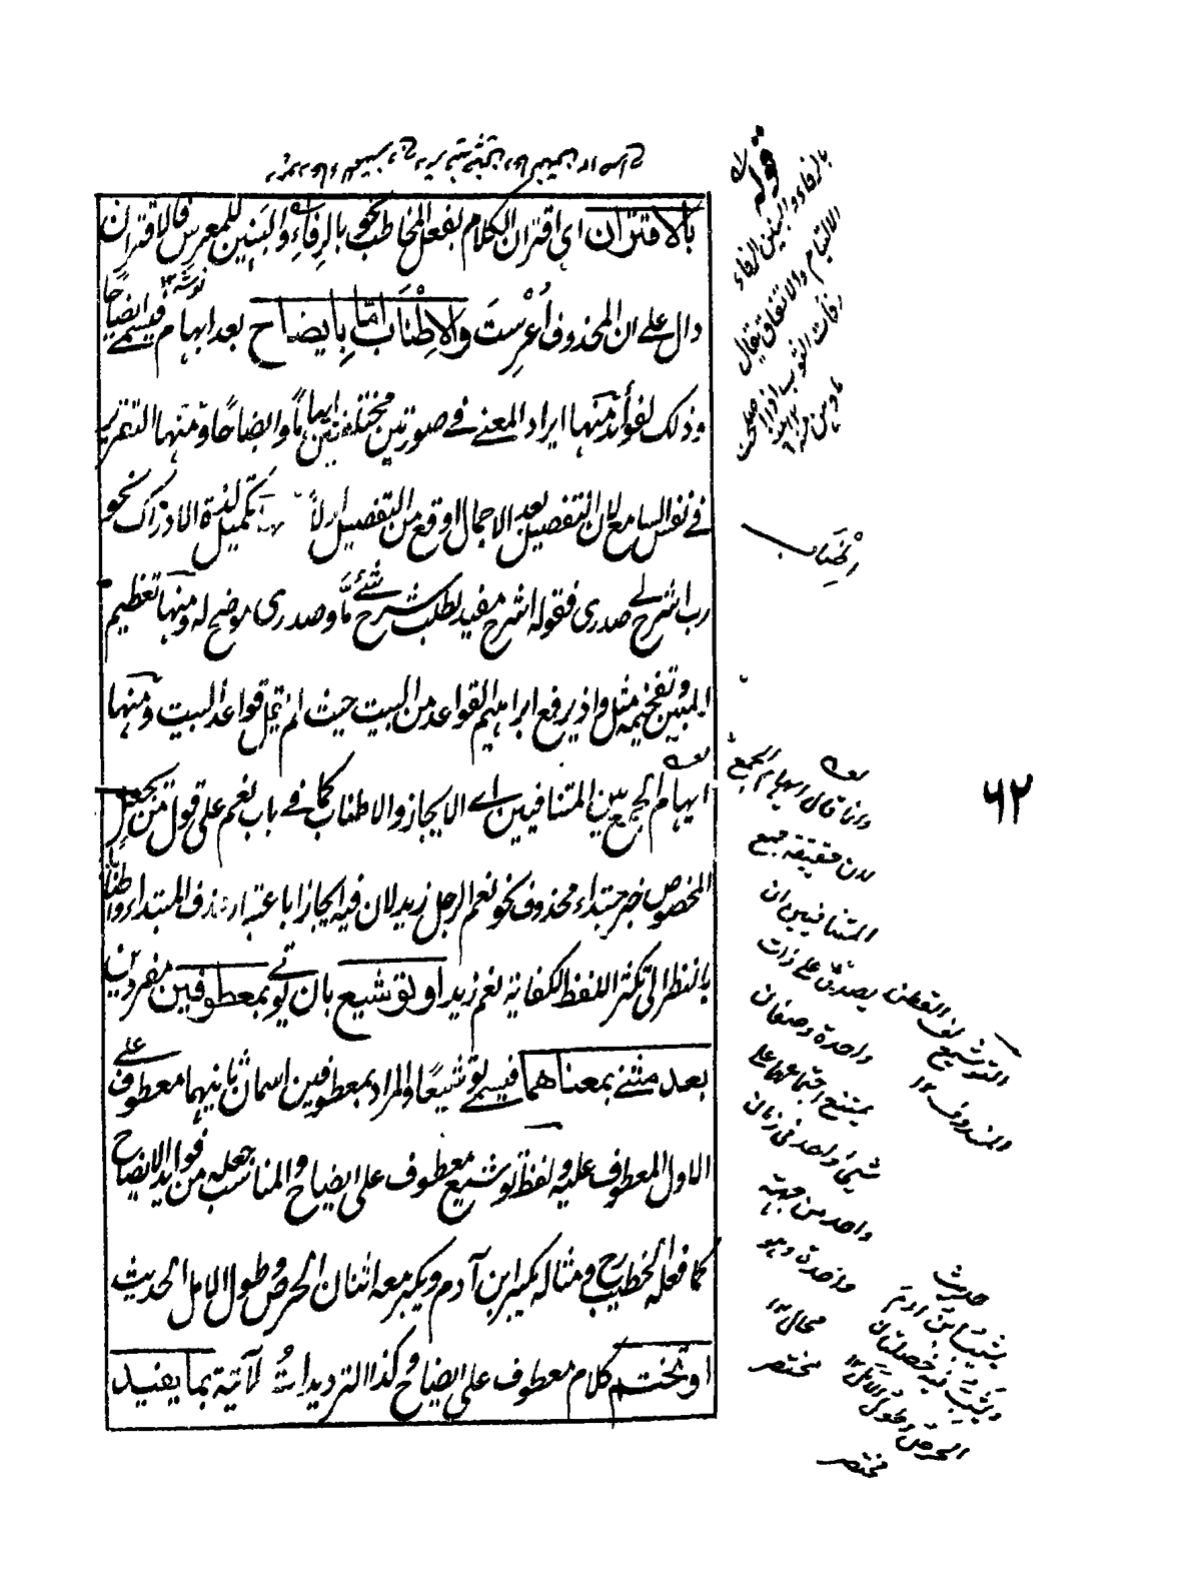 بالاقتران اى اقتران الكلام بفعل المخاطب نحو بالرفاء والبنين للمعرس فالاقتران
دال على ان المحذوف اعرست والاطناب اما بايضاح بعد ابهام فيسمى ايضاحًا
وذلك لفوائد منها ايراد المعنى فى صورتين مختلفتين ابهامًا وايضاحًا ومنها التقرير
فى نفس السامع لان التفصيل بعد الاجمال اوقع من التفصيل اولاً تكميل لذة الادراك نحو
رب اشرح لى صدرى فقوله اشرح مفيد لطلب شرح شئ ما وصدرى موضح له ومنها تعظيم
المبين وتفخيمه مثل واذ يرفع ابراهيم القواعد من البيت حيث لم يقل قواعد البيت ومنها
ايهام الجمع بين المتنافيين اى الايجاز والاطناب كما فى باب نعم على قول من يجعل
المخصوص خبر مبتداء محذوف نحو نعم الرجل زيد لان فيه ايجازا باعتبار حذف المبتداء واطنابا
بالنظر الى تكثر اللفظ لكفاية نعم زيد او توشيع بان يؤتى بمعطوفين مفردين
بعد مثنى بمعناهما فيسمى توشيعًا والمراد بمعطوفين اسمان ثانيهما معطوف على
الاول المعطوف عليه ولفظ توشيع معطوف على ايضاح والمناسب جعله من فوايد الايضاح
كما فعله الخطيب ومثاله يكبر ابن آدم ويكبر معه اثنان الحرص وطول الامل الحديث
او بختم كلام معطوف على ايضاح وكذا الترديدات الآتية بما يفيد
قوله
بالرفاء والبنين الرفاء
الالتيام والاتفاق يقال
رفأت الثوب اذا اصلحت
قوله
وانما قال ايهام الجمع
لان حقيقة جمع
المتنافيين ان
يصدق على ذات
واحدة وصفان
يمتنع اجتماعهما على
شئ واحد فى زمان
واحد من جهة
واحدة وهو
محال ١٢
مختصر
٦٢
التوشيع لف القطن
المندوف ١٢
حديث
يشيب ابن ادم
ويشب فيه خصلتان
الحرص وطول الامل ١٢
مختصر